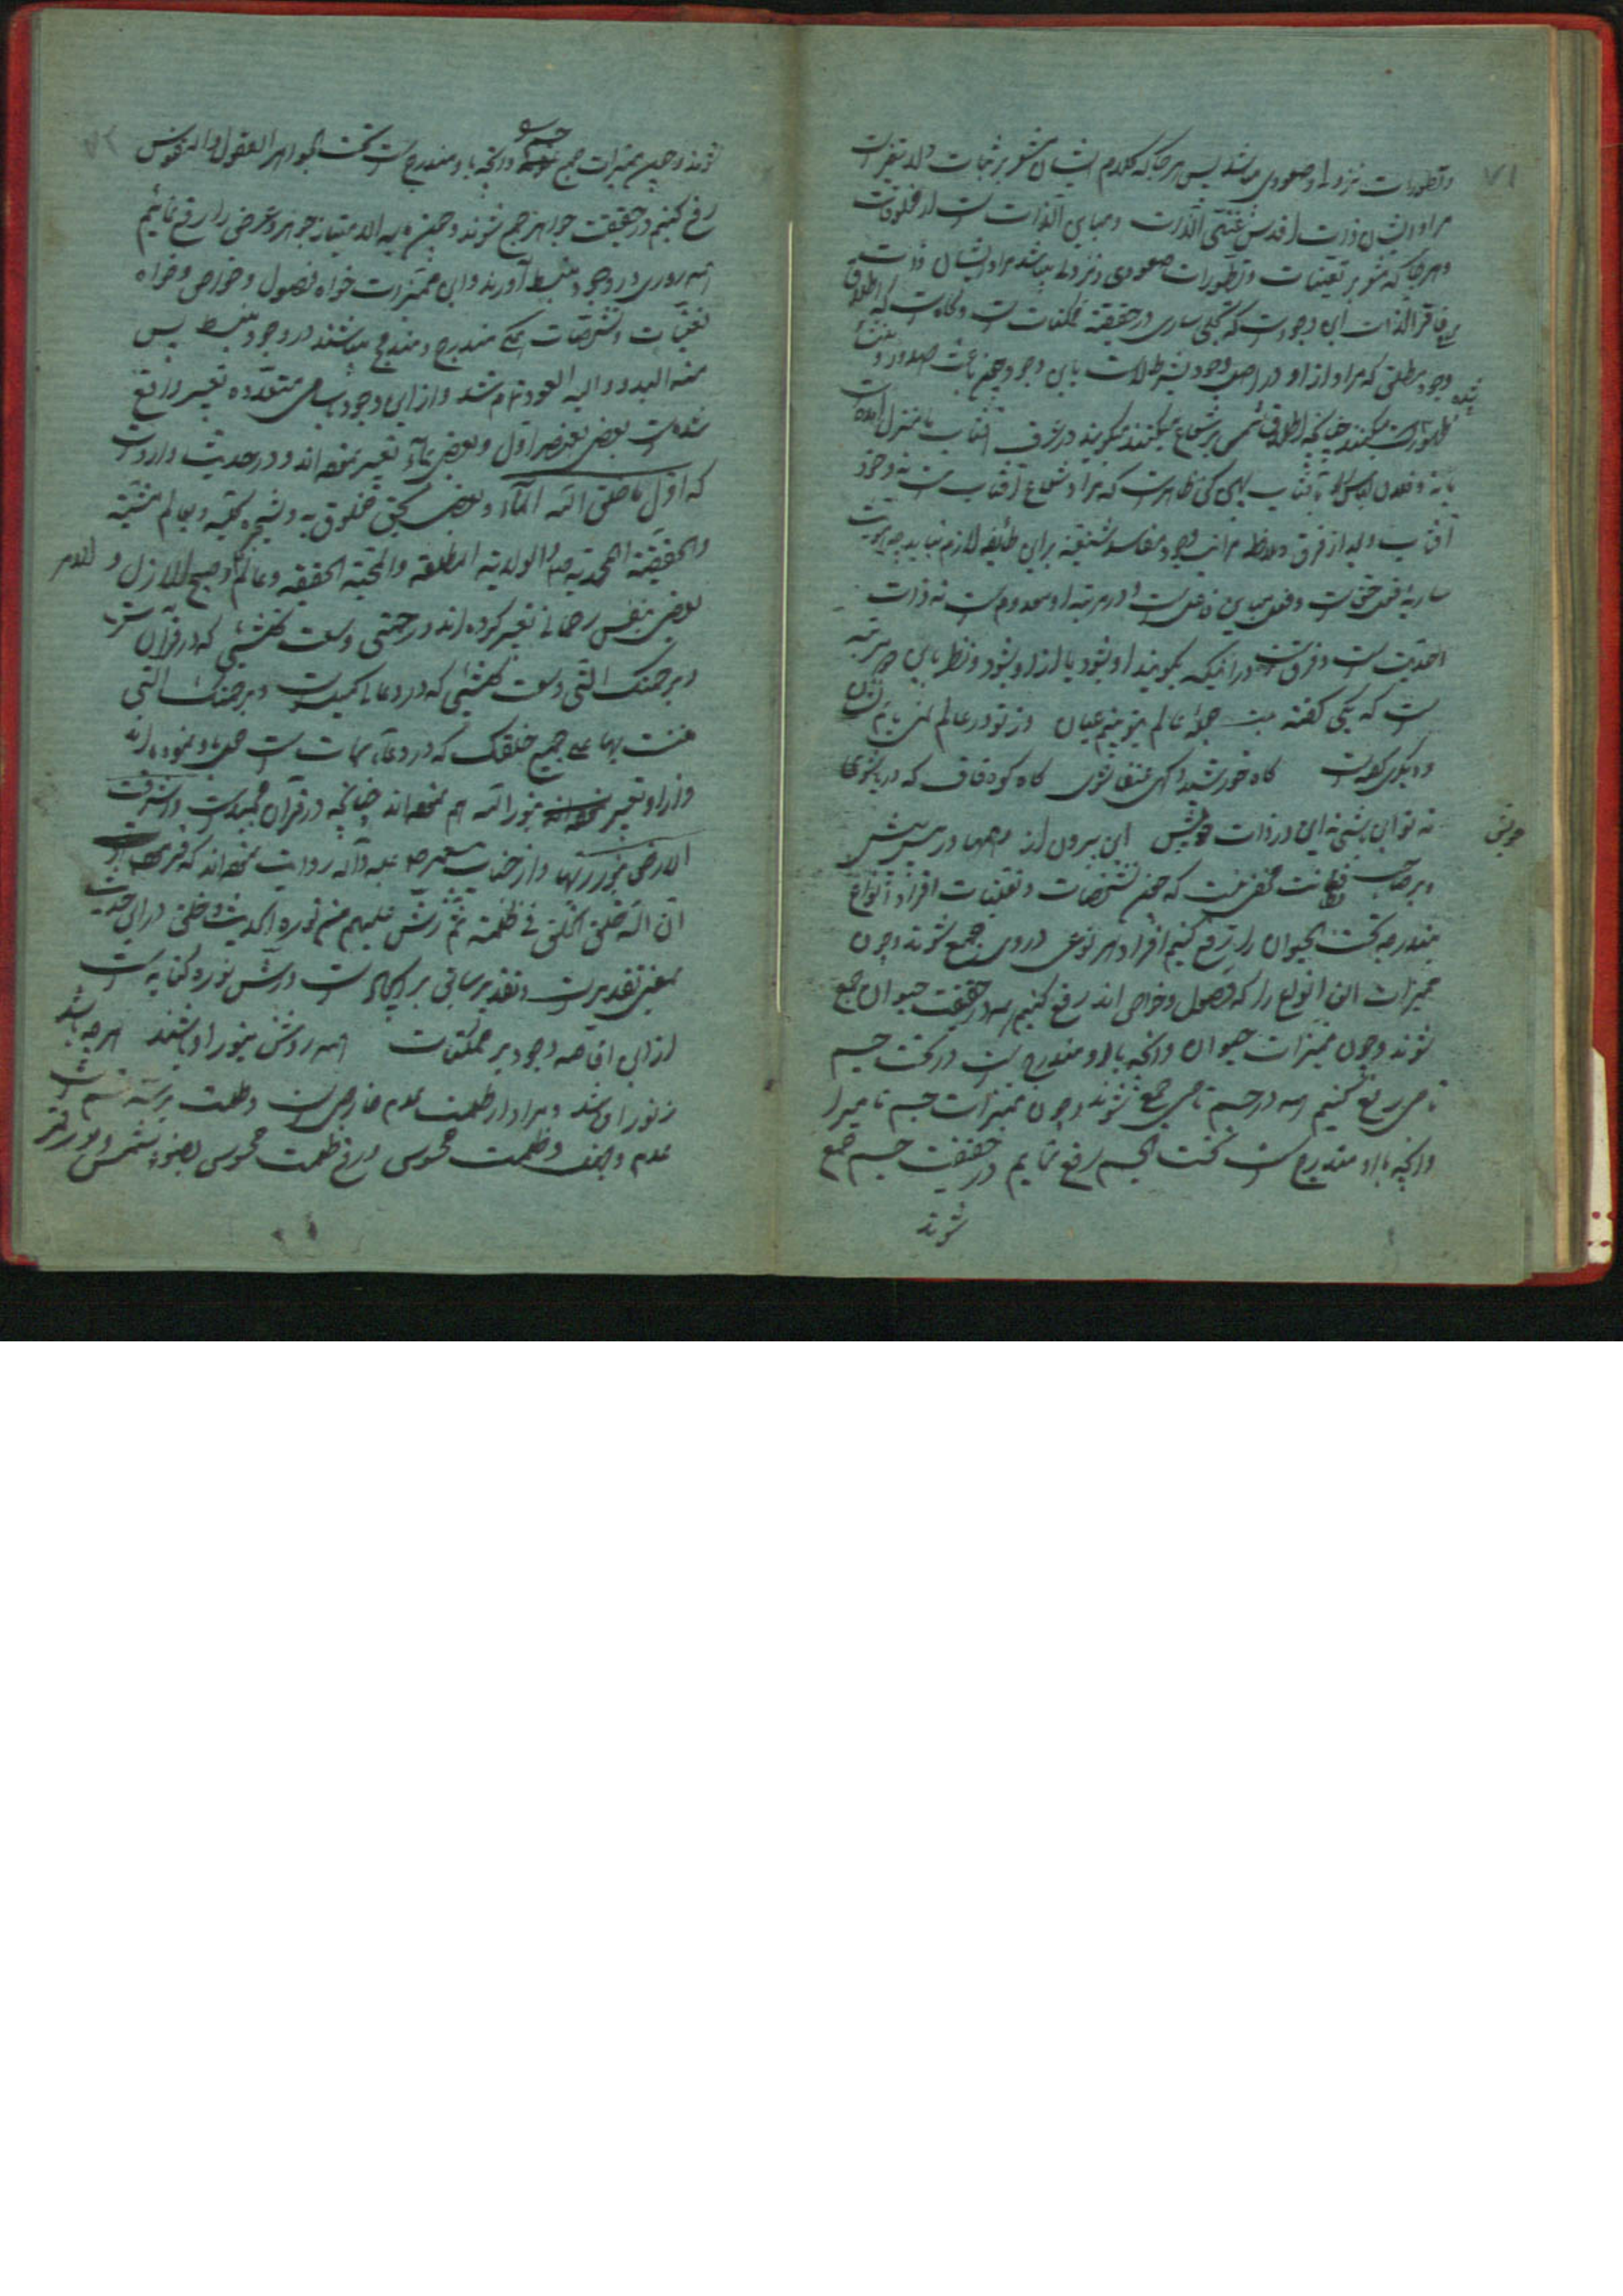 ۷۱
وتطورات نزولی وصعودی میباشد پس هر جا که کلام ایشان مشعر بر ثبات ولا تغیر است
مراد ایشان ذات اقدس غنی الذات ومباین الذات است از مخلوقات
وهر جا که مشعر بر تعینات وتطورات صعودی ونزولی میباشد مراد ایشان ذات
فاقر الذات این وجود است که تجلی ساری در حقیقة ممکنات است وگاه است که اطلاق
وجود مطلق که مراد از او در اصل وجود بشرط لاست باین وجود چون باعث صدور ومنشأ
شده
ظهور است میکنند چنانچه اطلاق شمس بر شعاع میکنند میگویند در عرف آفتاب بمنزل آمده است
یا نه وفلان لباس را بآفتاب پهن کن ظاهر است که مراد شعاع آفتاب است نه خود
آفتاب وبعد از فرق وملاحظه مراتب وجود مفاسد شنیعه برین طائفه لازم نیاید چه هویت
ساریه فعل حق است وفعل مباین فاعل است ودر مرتبه او معدوم است نه ذات
احدیت است وفرق است در اینکه بگویند او شود یا از او شود ونظر باین مرتبه
است که یکی گفته بیت جمله عالم بتو بینم عیان وز تو در عالم نمی یابم نشان
ودیگری گفته است گاه خورشید وگهی عنقا شوی گاه کوه قاف که دریا شوی
نه تو آن باشی نه این در ذات خویش ای برون از وهمها در پیش پیش
خویش
وبر صاحب فطانت مخفی نیست که چون تشخصات وتعینات افراد انواع
مندرجه تحت الحیوان را رفع کنیم افراد هر نوعی در وی جمع شوند وچون
ممیزات این انواع را که فصول وخواص اند رفع کنیم همه در حقیقت حیوان جمع
شوند وچون ممیزات حیوان وآنچه با او مندرج است در تحت جسم
نامی رفع کنیم همه در جسم نامی جمع شوند وچون ممیزات جسم نامی را
وآنچه با او مندرج است تحت الجسم رفع نمایم در حقیقت جسم جمع
شوند
۷۲
شوند وچون ممیزات جمیع جسم وآنچه با او مندرج است تحت الجواهر العقول والنفوس
رفع کنیم در حقیقت جواهر جمع شوند وچون ما به الامتیاز جوهر وعرض را رفع نمائیم
همه روی در وجود منبسط آورند واین ممیزات خواه فصول وخواص وخواه
تعینات وتشخصات همگی مندرج ومندمج میباشند در وجود منبسط پس
منه البدو والیه العود تمام شد واز این وجود باسامی متعدده تعبیر واقع
شده است بعضی بعنصر اول وبعضی بماء تعبیر نموده اند ودر حدیث وارد است
که اول ما خلق الله الماء وبعضی بحق مخلوق به وبشجره کلیه وبعالم مشیة
والحقیقة المحمدیه ص والولایة المطلقة والمحبة الحقیقه وعالم وصبح الازل والامر
بعضی بنفس رحمانی تعبیر کرده اند ورحمتی وسعت کل شئی که در قرآن است
وبرحمتک التی وسعت کل شئی که در دعاء کمیل است وبرحمتک التی
مننت بها علی جمیع خلقک که در دعاء سمات است حمل باو نموده اند
واز او تعبیر بنور الله هم نموده اند چنانچه در قرآن مجید است واشرقت
الارض بنور ربها واز جناب پیغمبر صلی علیه وآله روایت نموده اند که فرموده
ان الله خلق الخلق فی ظلمة ثم رش علیهم من نوره الحدیث وخلق در این حدیث
بمعنی تقدیر است وتقدیر سابق بر ایجاد است ورش نوره کنایه است
از این افاضه وجود بر ممکنات همه روشن بنور او باشند هر چه باشد
ز نور او باشند ومراد از ظلمت عدم خارجی است وظلمت بر سه قسم است
عدم وجهل وظلمت محسوس ورفع ظلمت محسوس بضوء شمس ونور قمر